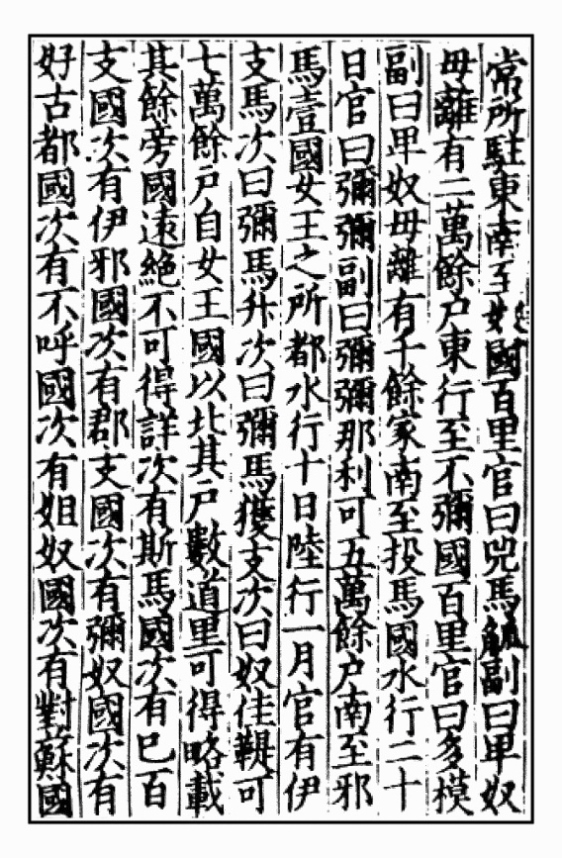 常所駐東南至奴國百里官曰兕馬觚副曰卑奴
毋離有二萬餘户東行至不彌國百里官曰多模
副曰卑奴毋離有千餘家南至投馬國水行二十
日官曰彌彌副曰彌彌那利可五萬餘户南至邪
馬壹國女王之所都水行十日陸行一月官有伊
支馬次曰彌馬升次曰彌馬獲支次曰奴佳鞮可
七萬餘户自女王國以北其户數道里可得略載
其餘旁國遠絶不可得詳次有斯馬國次有巳百
支國次有伊邪國次有郡支國次有彌奴國次有
好古都國次有不呼國次有姐奴國次有對蘇國